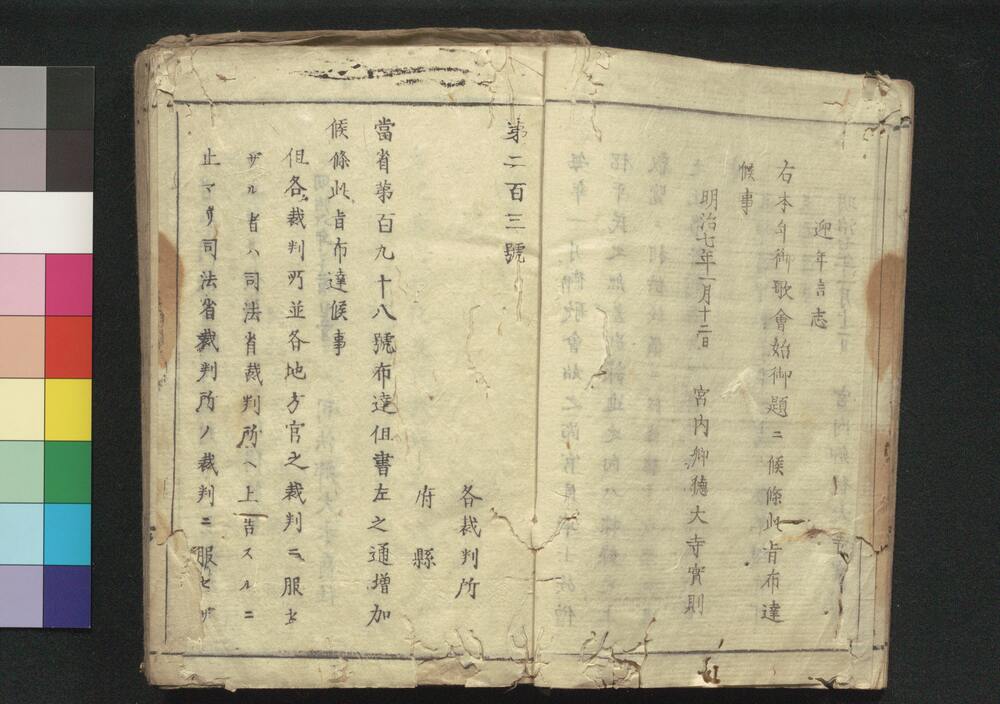 迎年言志
右本年御歌會始御題ニ候條此旨布達
候事
明治七年一月十二日　宮内卿德大寺實則
第二百三號
各裁判所
府縣
當省第百九十八號布達但書左之通增加
候條此旨布達候事
但各裁判所並各地方官之裁判ニ服セ
ザル者ハ司法省裁判所ヘ上告スルニ
止マリ司法省裁判所ノ裁判ニ服セザ